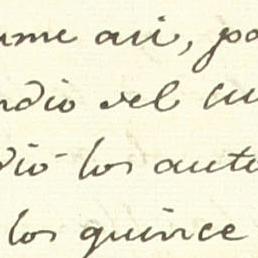 ume asi, po
ndio del cu
dió los auto
los quince